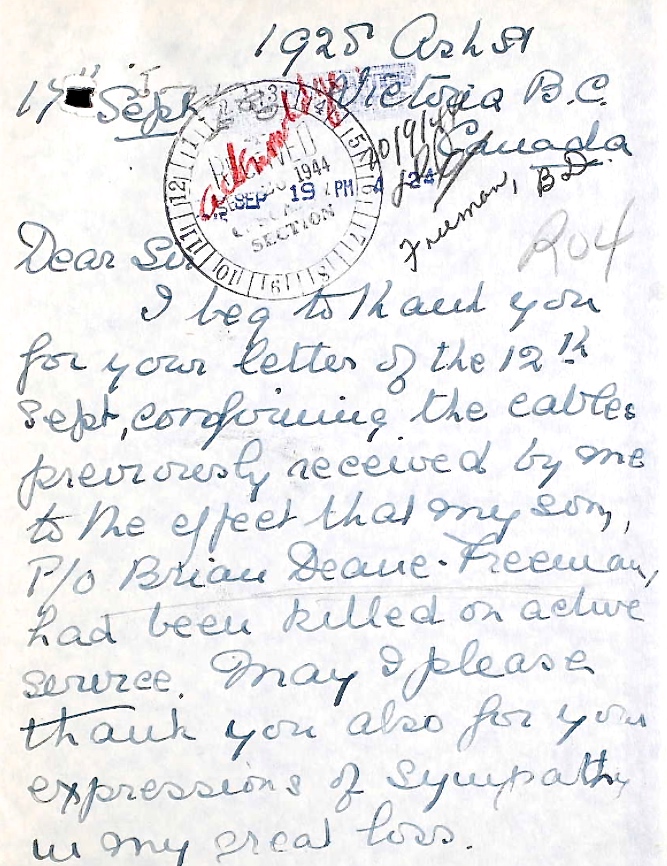 1925 Ash St
17 Sept Victoria B.C.
Canada
SEP 19 PM 4 24
1944
SECTION
20/9/44
Freeman, B.D.
R04
Dear Sir
I beg to thank you
for your letter of the 12th
Sept, comfirming the cables
previously received by me
to the effect that my son,
P/o Brian Deane-Freeman,
had been killed on active
service. May I please
thank you also for your
expressions of sympathy
in my great loss.